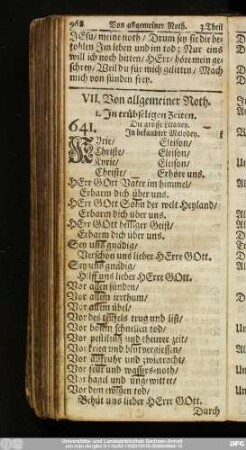 968 Von allgemeiner Noth. 3. Theil
JEsu/ meine noth/ Drum sey sie dir be-
fohlen Im leben und im tod; Nur eins
will ich noch bitten/ HErr/ hör mein ge-
schrey/ Weil du für mich gelitten/ Mach
mich von sünden frey.
VII. Von allgemeiner Noth.
1. In trübseligen Zeiten.
641. Die grosse Litaney.
In bekandter Melodey.
KYrie/ Eleison/
Christe/ Eleison/
Kyrie/ Eleison/
Christe/ Erhöre uns.
HErr GOtt Vater im himmel/
Erbarm dich über uns.
HErr GOtt Sohn der welt Heyland/
Erbarm dich über uns.
HErr GOtt heiliger Geist/
Erbarm dich über uns.
Sey uns gnädig/
Verschon uns lieber HErre GOtt.
Sey uns gnädig/
Hilff uns lieber HErre GOtt.
Vor allen sünden/
Vor allem irrthum/
Vor allem übel/
Vor des teufels trug und list/
Vor bösem schnellen tod/
Vor pestilentz und theurer zeit/
Vor krieg und blutvergiessen/
Vor aufruhr und zwietracht/
Vor feur und wassers-noth/
Vor hagel und ungewitter/
Vor dem ewigen tod/
Behüt uns lieber HErre GOtt.
Durch
Universitäts- und Landesbibliothek Sachsen-Anhalt